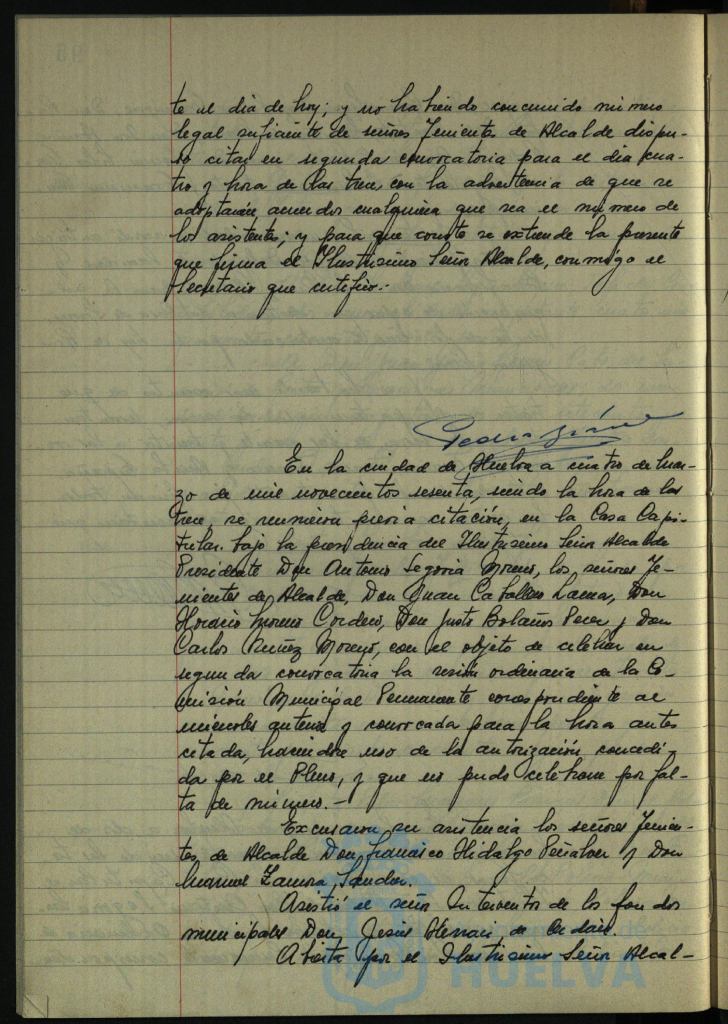 te el dia de hoy; y no habiendo concurrido número
legal suficiente de señores Tenientes de Alcalde dispu-
so citar en segunda convocatoria para el dia cua-
tro y hora de las trece con la advertencia de que se
adoptarán acuerdos cualquiera que sea el número de
los asistentes; y para que conste se extiende la presente
que firma el Ilustrisimo Señor Alcalde, conmigo el
Secretario que certifico.-
En la ciudad de Huelva a cuatro de mar-
zo de mil novecientos sesenta, siendo la hora de las
trece, se reunieron previa citación, en la Casa Capi-
tular bajo la presidencia del Ilustrisimo Señor Alcalde
Presidente Don Antonio Segovia Moreno, los señores Te-
nientes de Alcalde, Don Juan Caballero Lama, Don
Horacio Moreno Cordero, Don Justo Bolaños y Don
Carlos Nuñez Moreno, con el objeto de celebrar en
segunda convocatoria la sesión ordinaria de la Co-
misión Municipal Permanente correspondiente al
miercoles anterior y convocada para la hora antes
citada, haciendose uso de la autorización concedi-
da por el Pleno, y que no pudo celebrarse por fal-
ta de número.-
Excusaron su asistencia los señores Tenien-
tes de Alcalde Don Francisco Hidalgo Peñalver y Don
Manuel Zamora
Asistió el señor Interventor de los fondos
municipales Don Jesús
Abierta por el Ilustrisimo Señor Alcal-
HUELVA